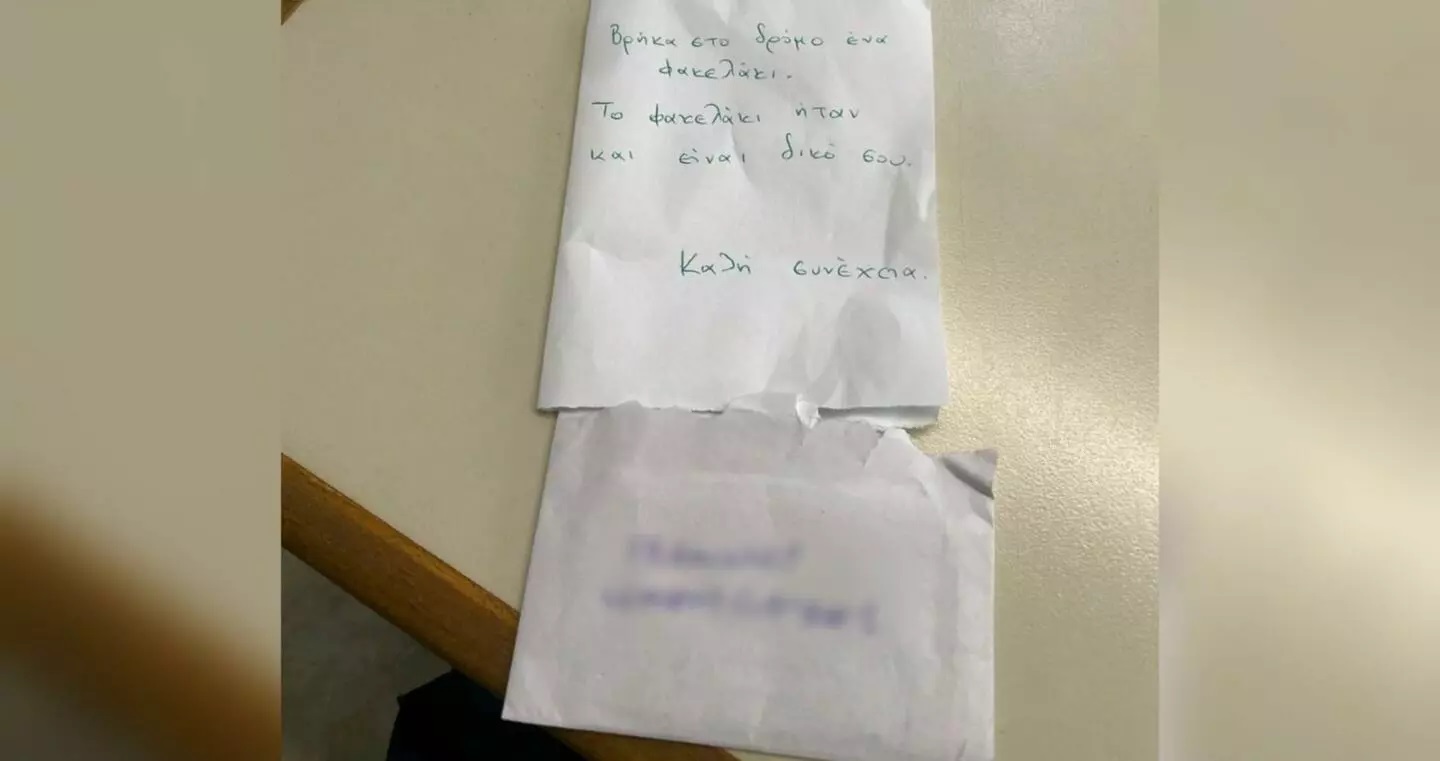 Βρήκα στο δρόμο ένα
φακελάκι.
Το φακελάκι ήταν
και είναι δικό σου.
Καλή συνέχεια.